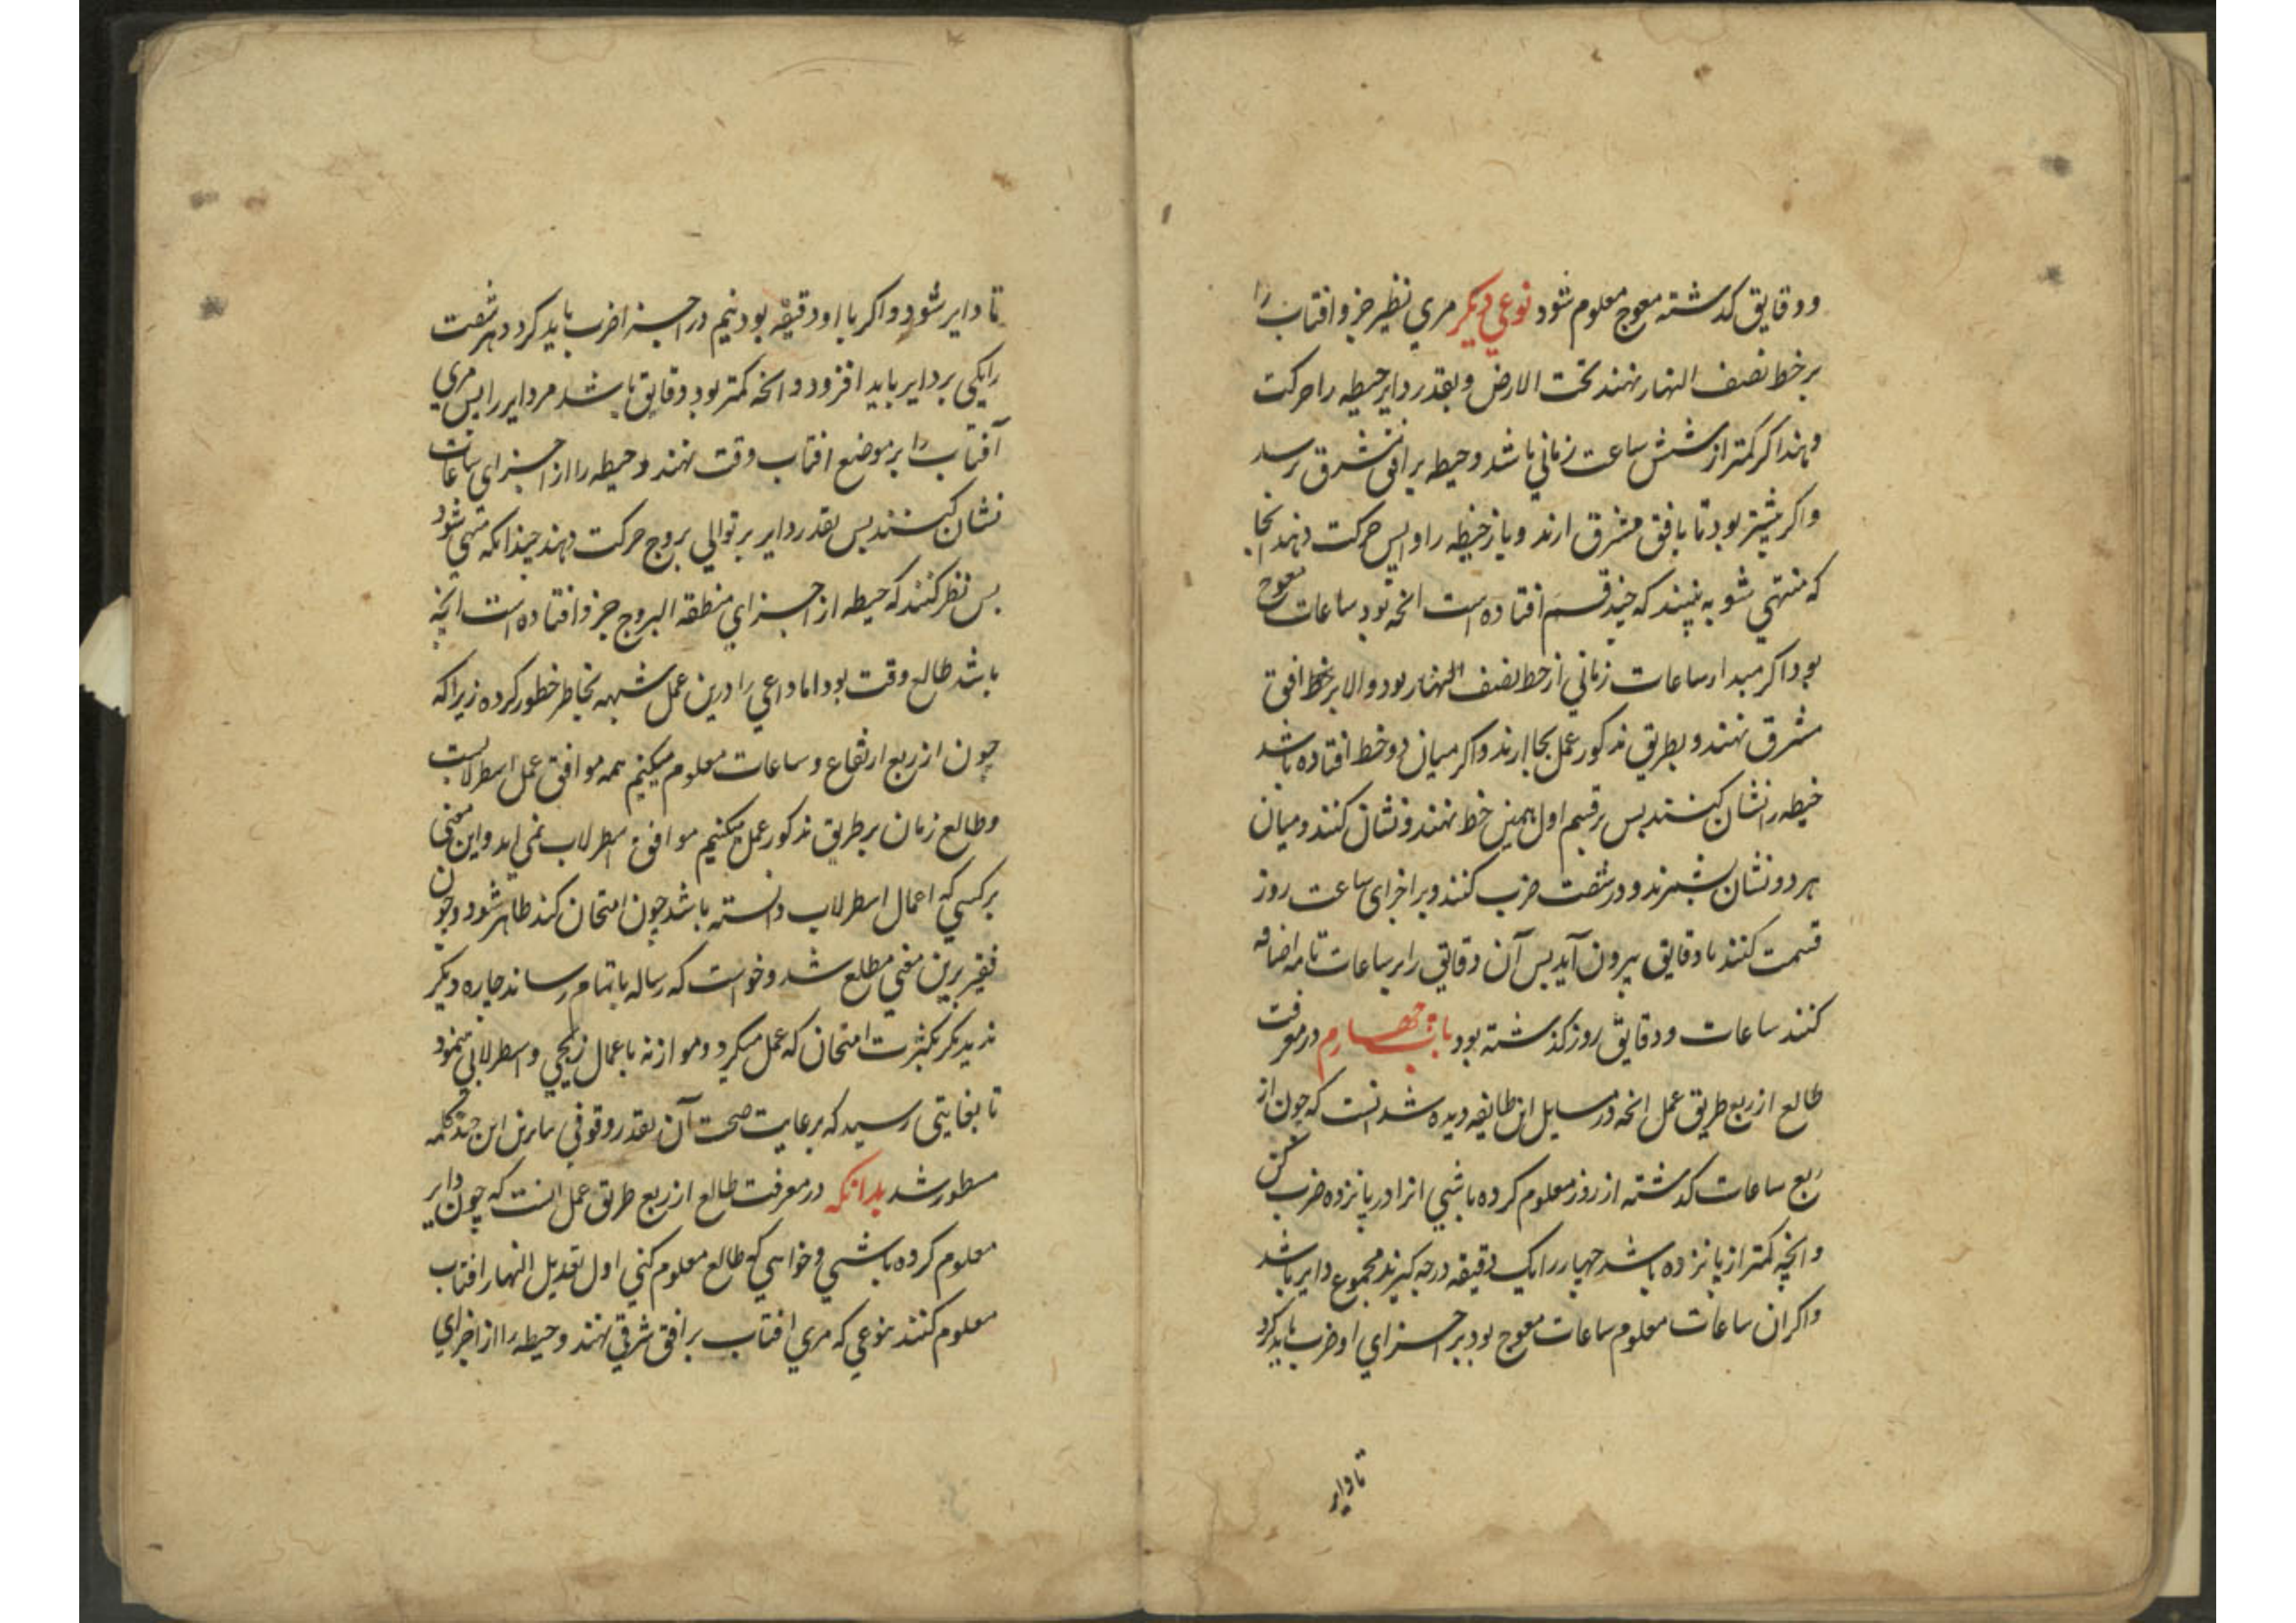 ودقایق کذشته معوج معلوم شود نوعی دیکر مری نظیر جزو افتاب را
بر خط نصف النهار نهند تحت الارض و بقدر دایر خیطه را حرکت
دهند اکر کمتر از شش ساعت زمانی باشد و خیطه بر افق مشرق رسد
واکر بیشتر بود تا بافق مشرق ارند و باز خیطه را واپس حرکت دهند انجا
که منتهی شود به بینند که چند قسم افتاده است انچه بود ساعات معوج
بود اکر مبدا ساعات زمانی از خط نصف النهار بود والا بر خط افق
مشرق نهند و بطریق مذکور عمل بجا ارند واکر میان دو خط افتاده باشد
خیطه را نشان کنند بس بر قسم اول همین خط نهند و نشان کنند و میان
هر دو نشان بشمرند و در شصت ضرب کنند و بر اجزای ساعت روز
قسمت کنند تا دقایق بیرون آید بس آن دقایق را بر ساعات تامه اضافه
کنند ساعات و دقایق روز کذشته بود باب چهارم در معرفت
طالع از ربع طریق عمل انچه در مسایل این طایفه دیده شد انست که چون از
ربع ساعات کذشته از روز معلوم کرده باشی انرا در پانزده ضرب کن
و انچه کمتر از پانزده باشد چهار را یک دقیقه درجه کیرند مجموع دایر باشد
واکر ان ساعات معلوم ساعات معوج بود بر اجزای او ضرب باید کرد
تا دایر
تا دایر شود و اکر با او دقیقه بود نیم در اجزا ضرب باید کرد هر شصت
را یکی بر دایر باید افزود و انچه کمتر بود دقایق باشد مر دایر را بس مری
آفتاب را بر موضع افتاب وقت نهند و خیطه را از اجزای ساعات
نشان کنند بس بقدر دایر بر توالی بروج حرکت دهند چندانکه منتهی شود
بس نظر کنند که خیطه از اجزای منطقه البروج جزو افتاده است انچه
باشد طالع وقت بود اما داعی را درین عمل شبهه بخاطر خطور کرده زیرا که
چون از ربع ارتفاع و ساعات معلوم میکنیم همه موافق عمل اسطرلابست
و طالع زمان بر طریق مذکور عمل میکنیم موافق اسطرلاب نمی اید و این معنی
بر کسی که اعمال اسطرلاب دانسته باشد چون امتحان کند ظاهر شود و چون
فقیر برین معنی مطلع شد و خواست که رساله باتمام رساند چاره دیکر
ندید مکر بکثرت امتحان که عمل میکرد و موازنه با عمال زیجی و اسطرلابی مینمود
تا بغایتی رسید که برعایت صحت آن بقدر وقوفی بنابرین این چند کلمه
مسطور شد بدانکه در معرفت طالع از ربع طریق عمل انست که چون دایر
معلوم کرده باشی و خواهی که طالع معلوم کنی اول تعدیل النهار افتاب
معلوم کنند بنوعی که مری افتاب بر افق شرقی نهند و خیطه را از اجزای